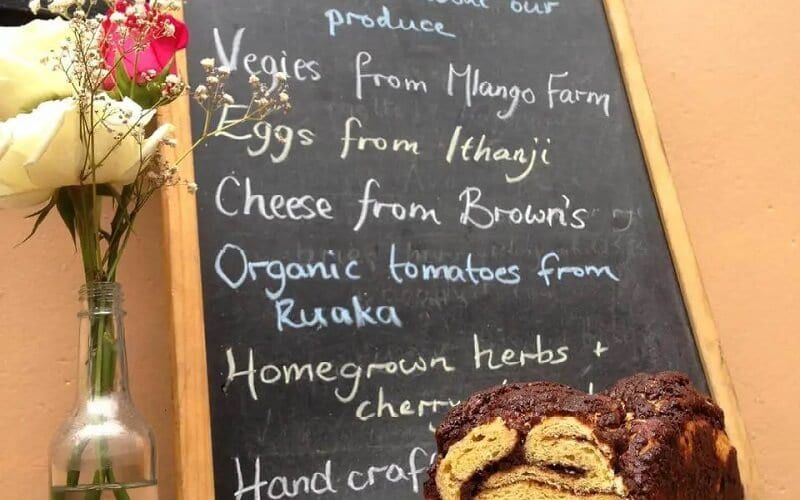 our
produce
Vegies from Mlango Farm
Eggs from Ithanji
Cheese from Brown's
Organic tomatoes from
Ruaka
Homegrown herbs +
cherry
Hand